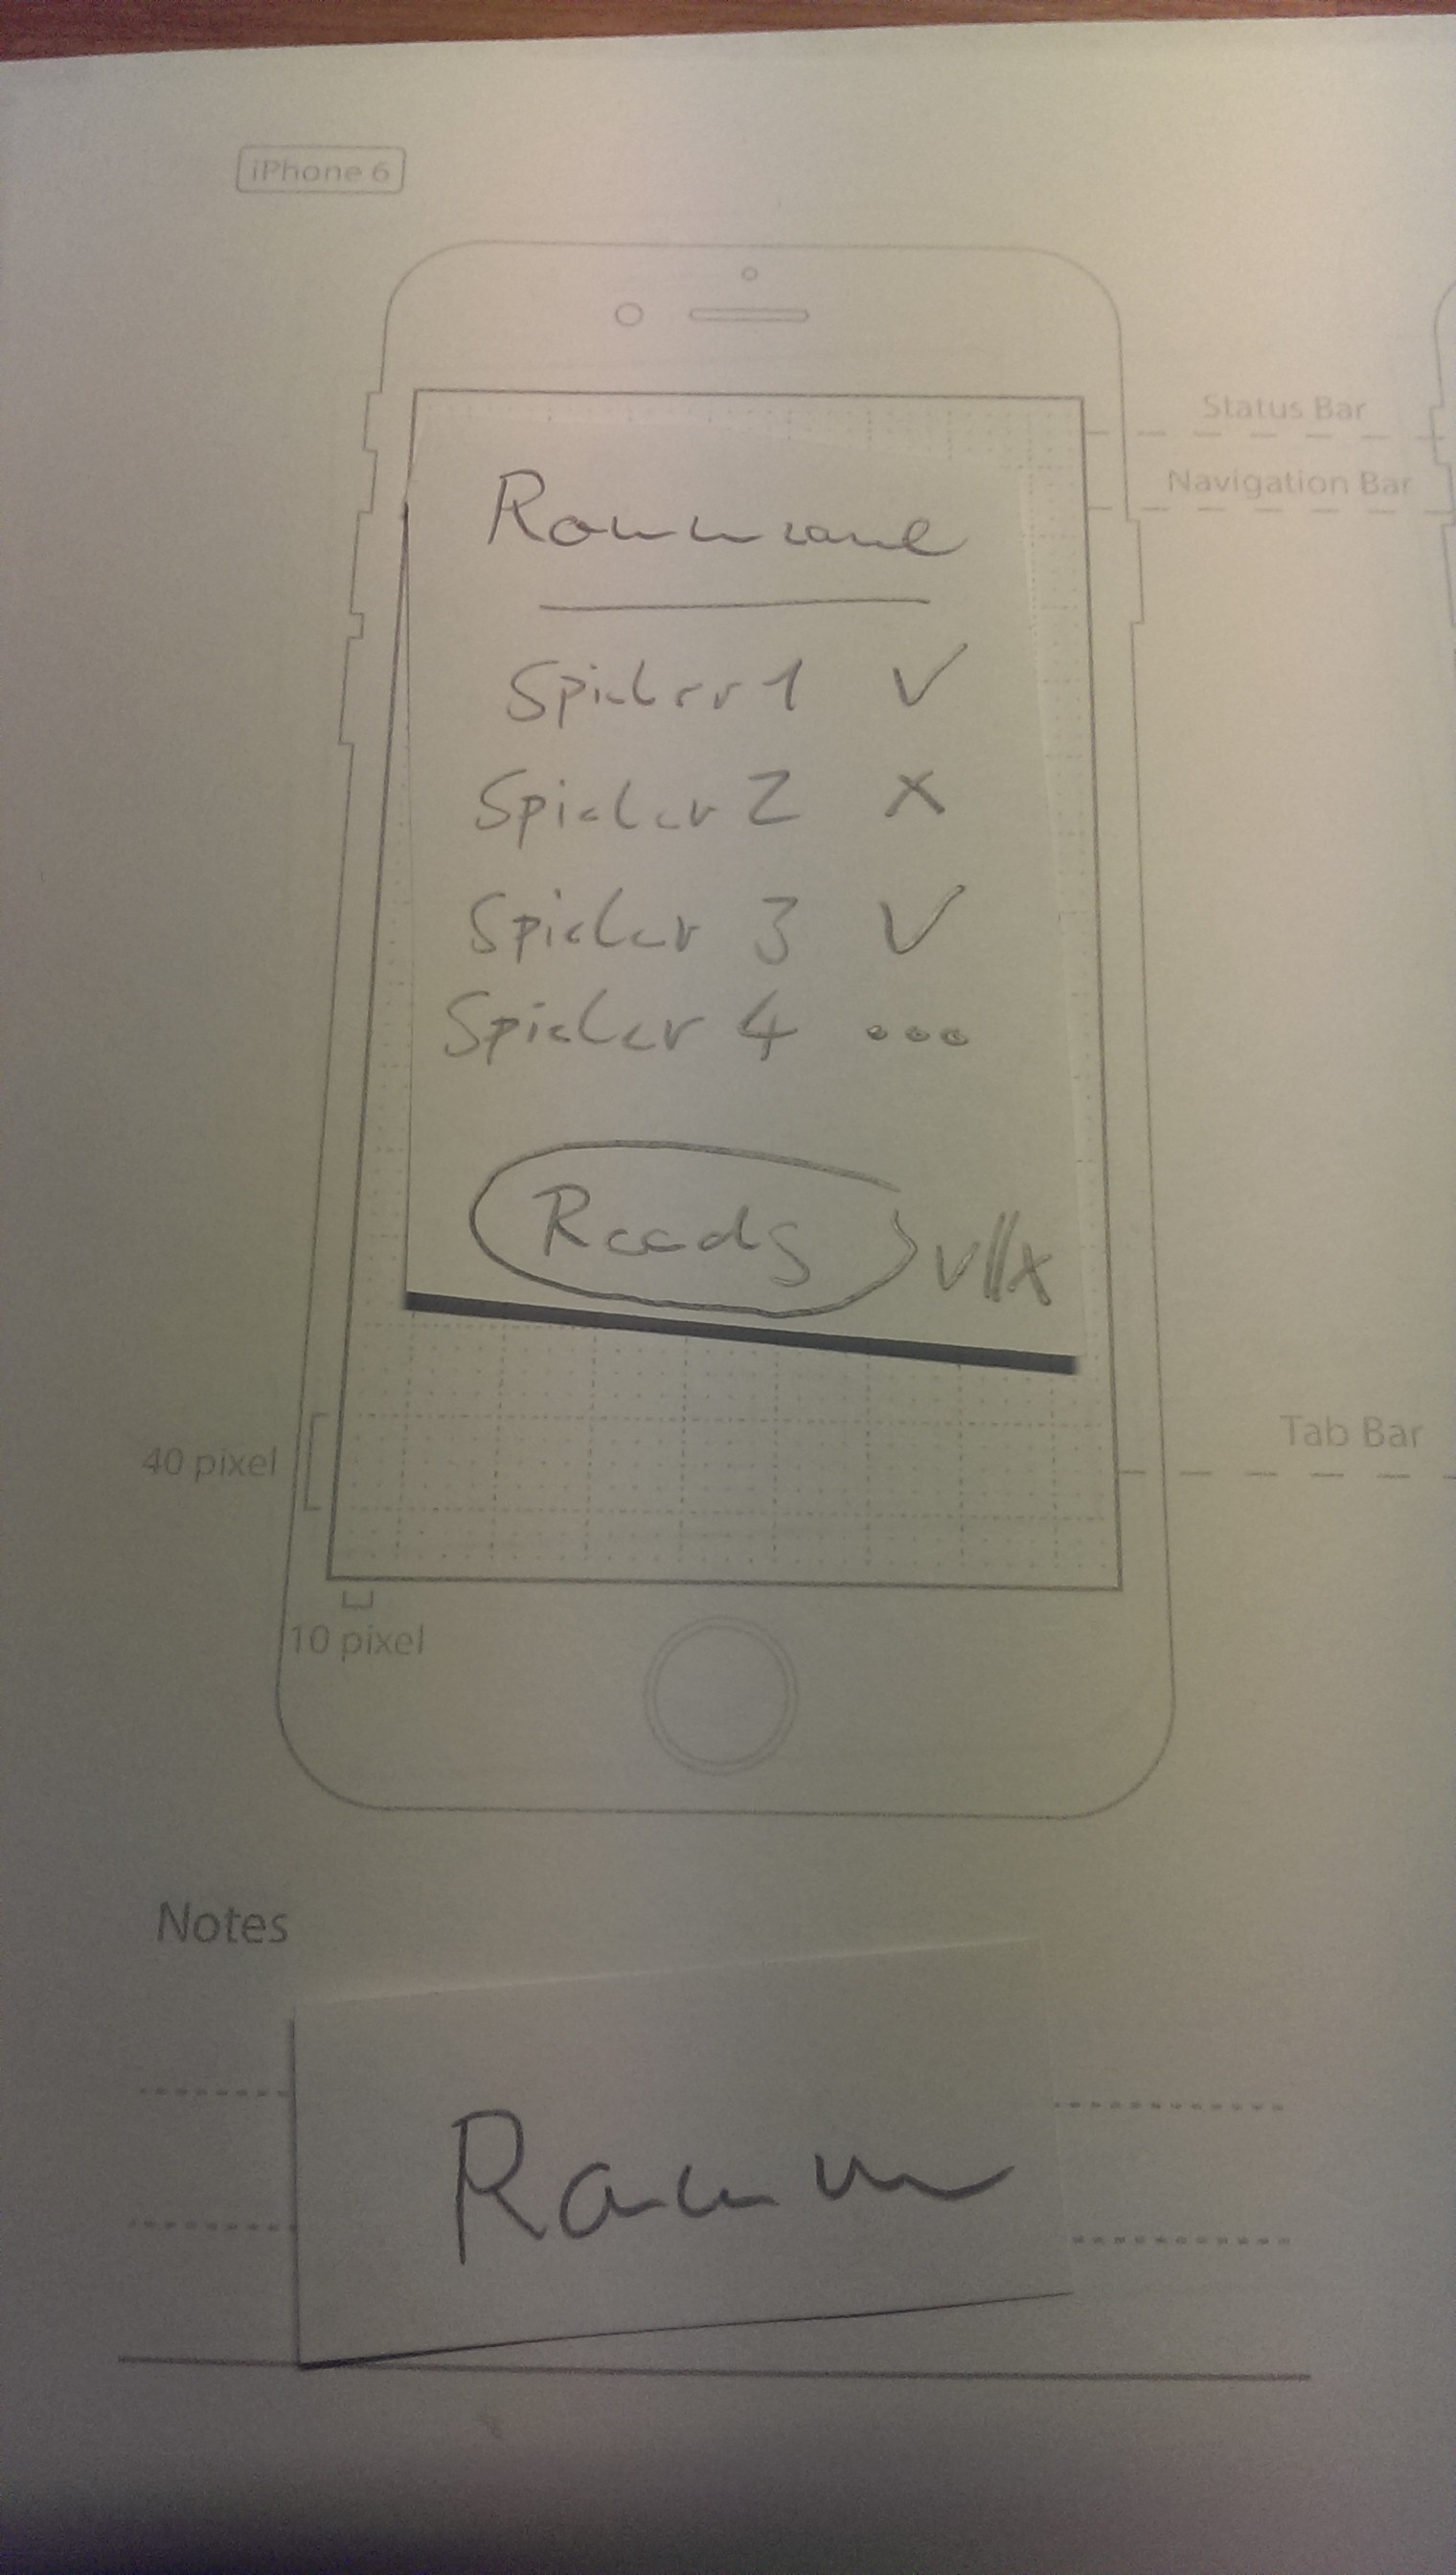 iPhone 6
Status Bar
Navigation Bar
Raumname
Spieler 1 ✓
Spieler 2 x
Spieler 3 ✓
Spieler 4 ...
Ready v//x
40 pixel
Tab Bar
10 pixel
Notes
Raum